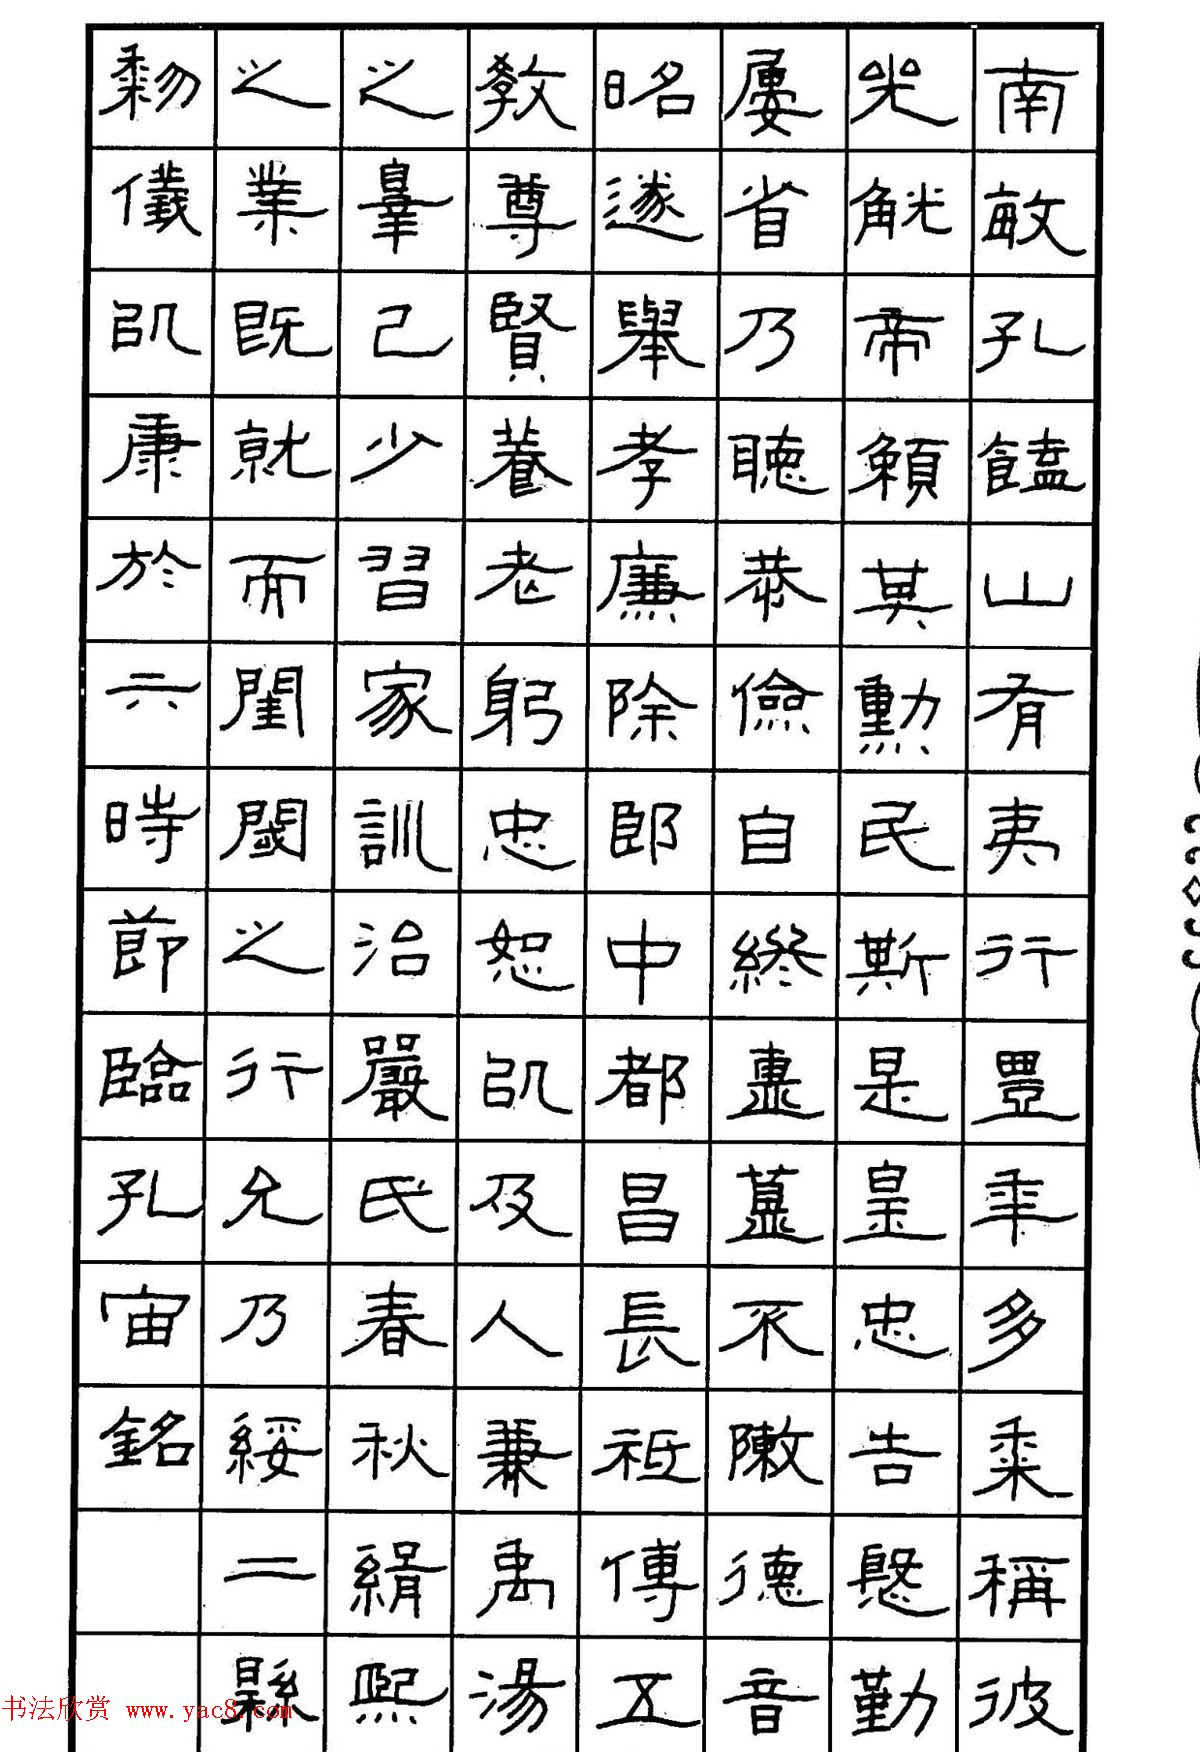 南畝孔饁山有夷行豐年多黍稱彼
光觥帝賴其勳民斯是皇忠告慇勤
屢省乃聽恭儉自終簠簋不敶德音
昭遂舉孝廉除郎中都昌長祗傅五
教尊賢養老躬忠恕以及人兼禹湯
之辠己少習家訓治嚴氏春秋緝熙
之業既就而閨閾之行允乃綏二縣
黎儀以康於六時節臨孔宙銘
书法欣赏 www.yac8.com